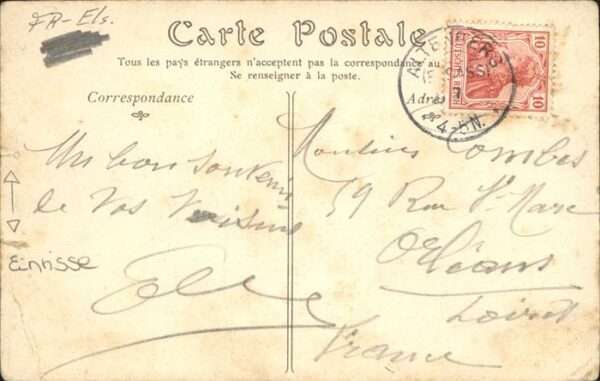 FR-Els.
Carte Postale
Tous les pays étrangers n'acceptent pas la correspondance au
Se renseigner à la poste.
Correspondance
Adres
ALTENBERG
(ELSASS)
4-5N.
10
10
DEUTSCHES REICH
Un bon souvenir
de Vos Voisins
Einrisse
Monsieur Combes
59 Rue St Marc
Orléans
Loiret
France